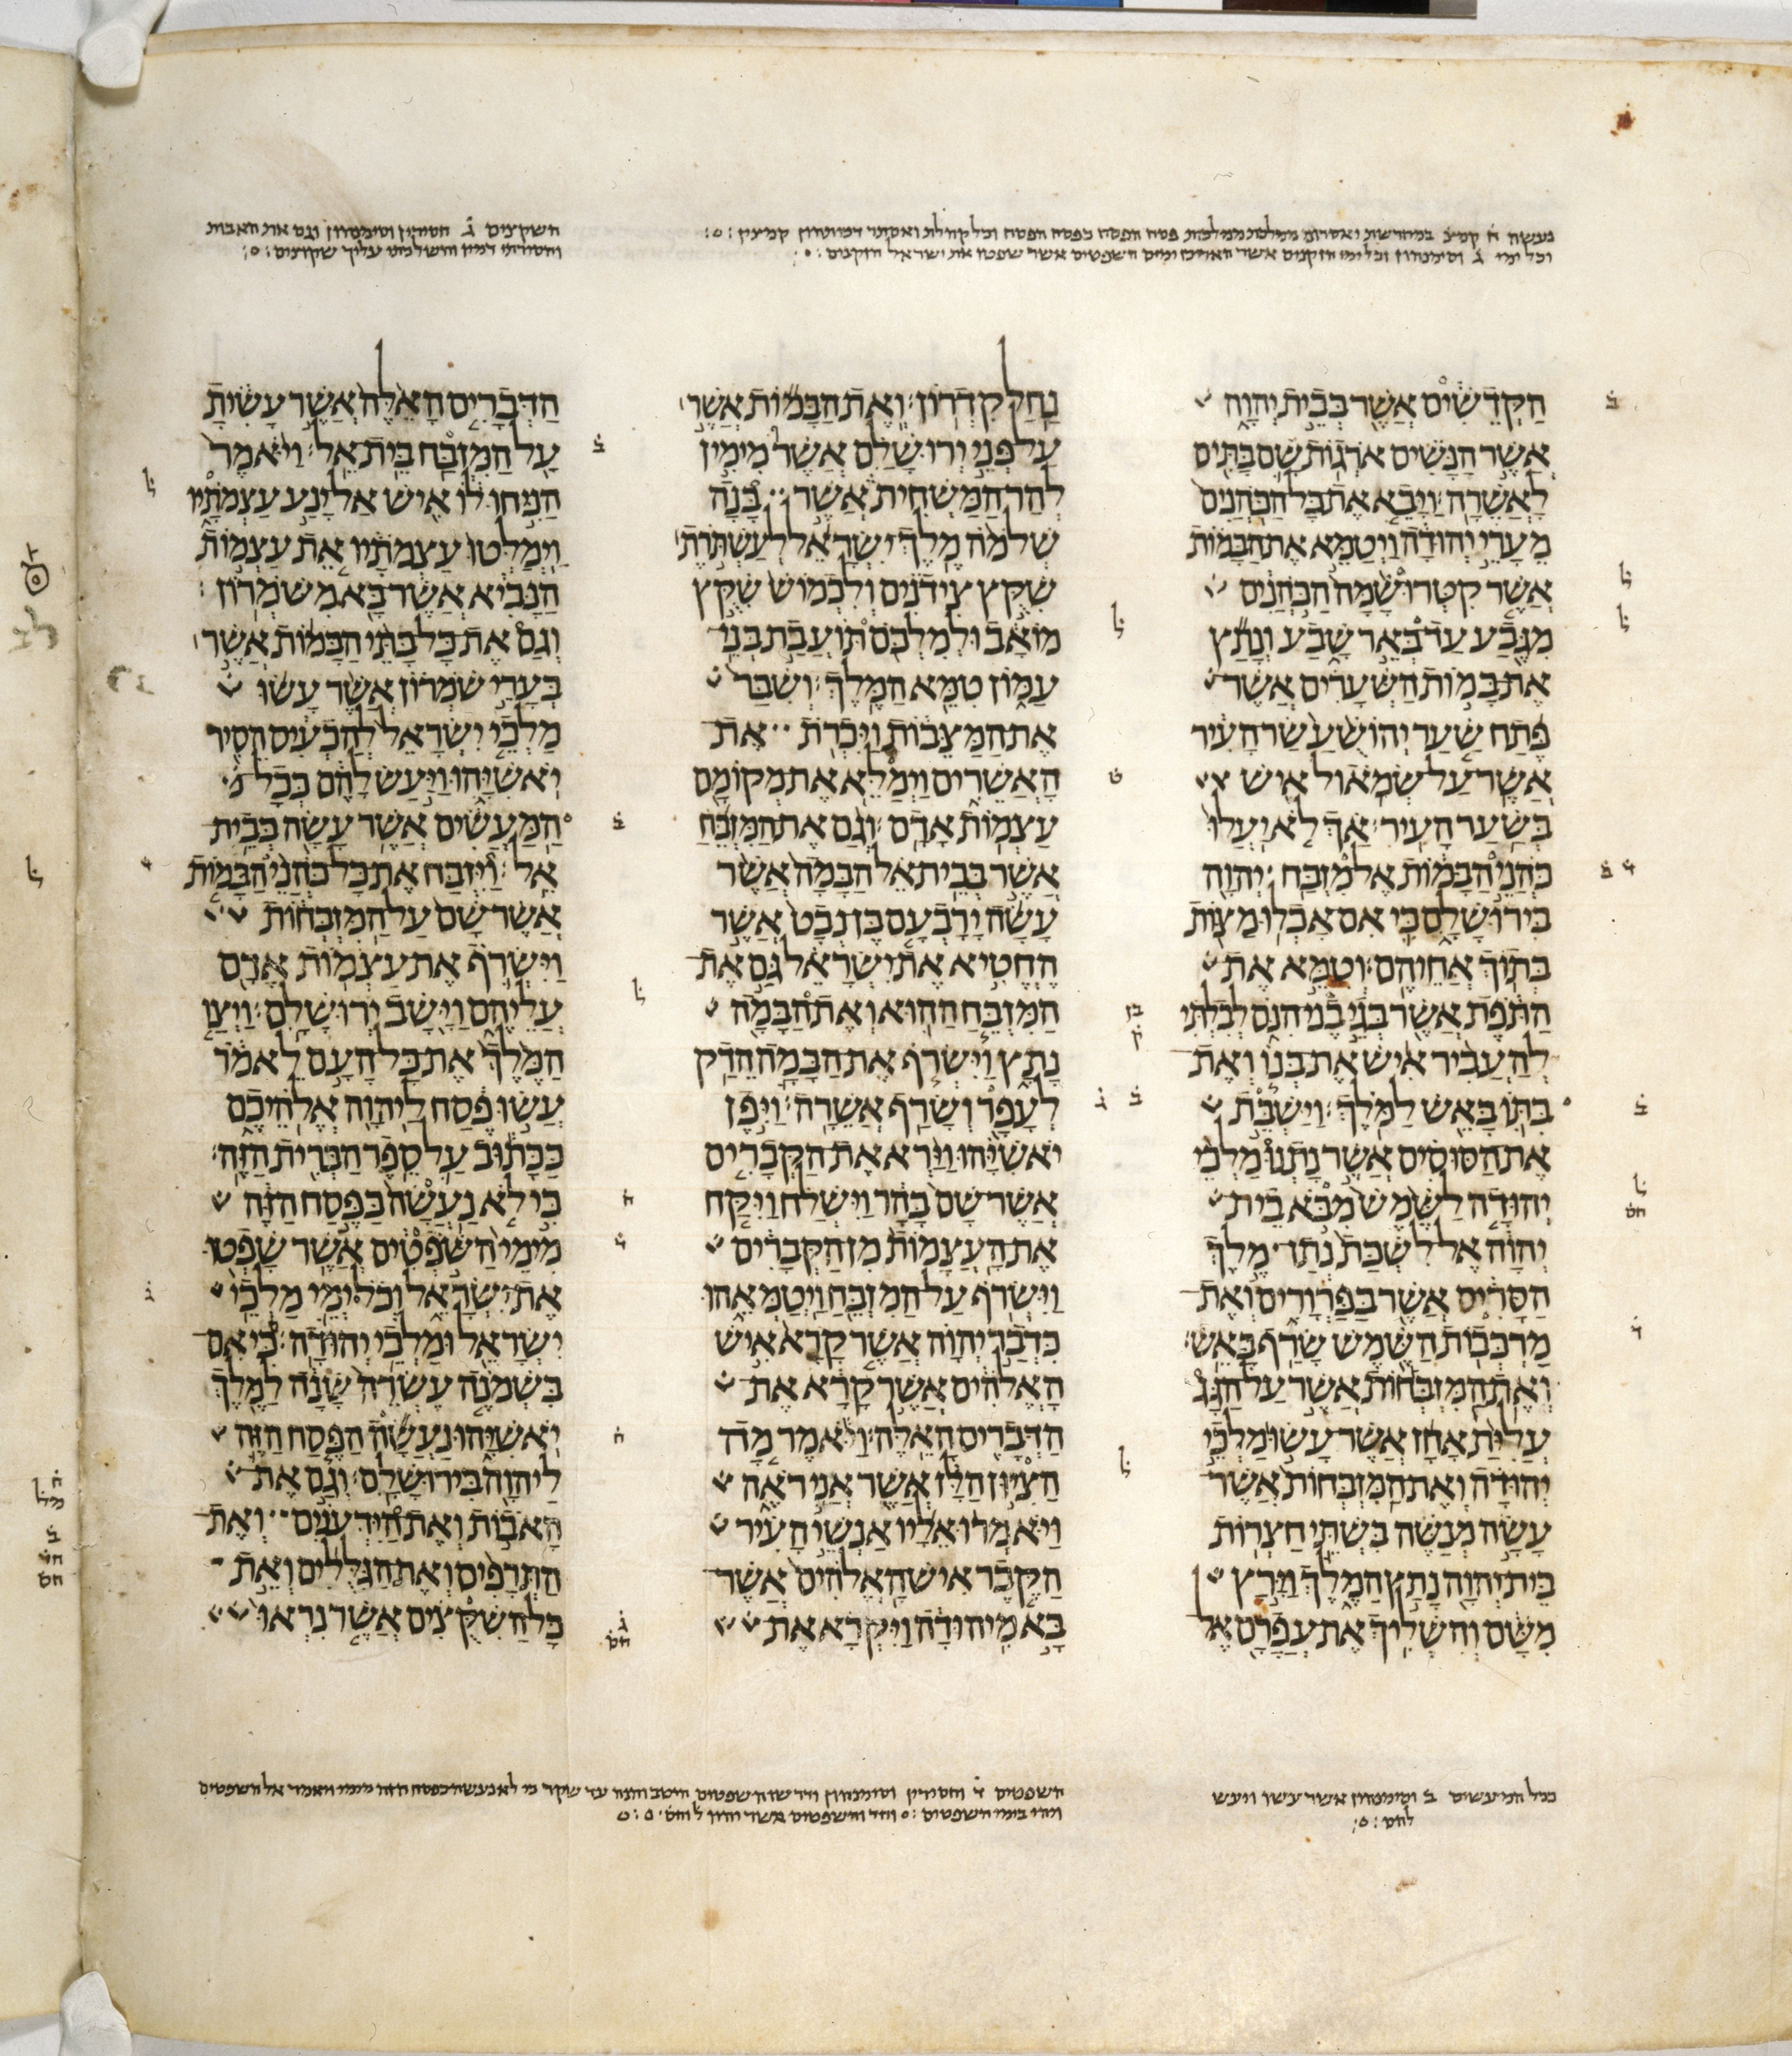 וכל ימי ג וסימנהון וכל ימי הזקנים אשר האריכו ימים השפטים אשר שפטו את ישראל הזקנים
השקצים ג חסידין וסימנהון וגם את האבות
הקדשים אשר בבית יהוה
אשר הנשים ארגות שם בתים
לאשרה ויבא את כל הכהנים
מערי יהודה ויטמא את הבמות
אשר קטרו שמה הכהנים
מגבע עד באר שבע ונתץ
את במות השערים אשר
פתח שער יהושע שר העיר
אשר על שמאול איש
בשער העיר אך לא יעלו
כהני הבמות אל מזבח יהוה
בירושלם כי אם אכלו מצות
בתוך אחיהם וטמא את
התפת אשר בגי בני הנם לבלתי
להעביר איש את בנו ואת
בתו באש למלך וישבת
את הסוסים אשר נתנו מלכי
יהודה לשמש מבא בית
יהוה אל לשכת נתן מלך
הסריס אשר בפרורים ואת
מרכבות השמש שרף באש
ואת המזבחות אשר על הגג
עלית אחז אשר עשו מלכי
יהודה ואת המזבחות אשר
עשה מנשה בשתי חצרות
בית יהוה נתץ המלך וירץ
משם והשליך את עפרם אל
נחל קדרון ואת הבמות אשר
על פני ירושלם אשר מימין
להר המשחית אשר בנה
שלמה מלך ישראל לעשתרת
שקץ צידנים ולכמוש שקץ
מואב ולמלכם תועבת בני
עמון טמא המלך ושבר
את המצבות ויכרת את
האשרים וימלא את מקומם
עצמות אדם וגם את המזבח
אשר בבית אל הבמה אשר
עשה ירבעם בן נבט אשר
החטיא את ישראל גם את
המזבח ההוא ואת הבמה
נתץ וישרף את הבמה הדק
לעפר ושרף אשרה ויפן
יאשיהו וירא את הקברים
אשר שם בהר וישלח ויקח
את העצמות מן הקברים
וישרף על המזבח ויטמאהו
כדבר יהוה אשר קרא איש
האלהים אשר קרא את
הדברים האלה ויאמר מה
הציון הלז אשר אני ראה
ויאמרו אליו אנשי העיר
הקבר איש האלהים אשר
בא מיהודה ויקרא את
הדברים האלה אשר עשית
על המזבח בית אל ויאמר
הניחו לו איש אל ינע עצמתיו
וימלטו עצמתיו את עצמות
הנביא אשר בא משמרון
וגם את כל בתי הבמות אשר
בערי שמרון אשר עשו
מלכי ישראל להכעיס הסיר
יאשיהו ויעש להם ככל
המעשים אשר עשה בבית
אל ויזבח את כל כהני הבמות
אשר שם על המזבחות
וישרף את עצמות אדם
עליהם וישב ירושלם ויצו
המלך את כל העם לאמר
עשו פסח ליהוה אלהיכם
ככתוב על ספר הברית הזה
כי לא נעשה כפסח הזה
מימי השפטים אשר שפטו
את ישראל וכל ימי מלכי
ישראל ומלכי יהודה כי אם
בשמנה עשרה שנה למלך
יאשיהו נעשה הפסח הזה
ליהוה בירושלם וגם את
האבות ואת הידענים ואת
התרפים ואת הגללים ואת
כל השקצים אשר נראו
ככל המעשים ב וסימנהון אשר עשו ויעש
להם